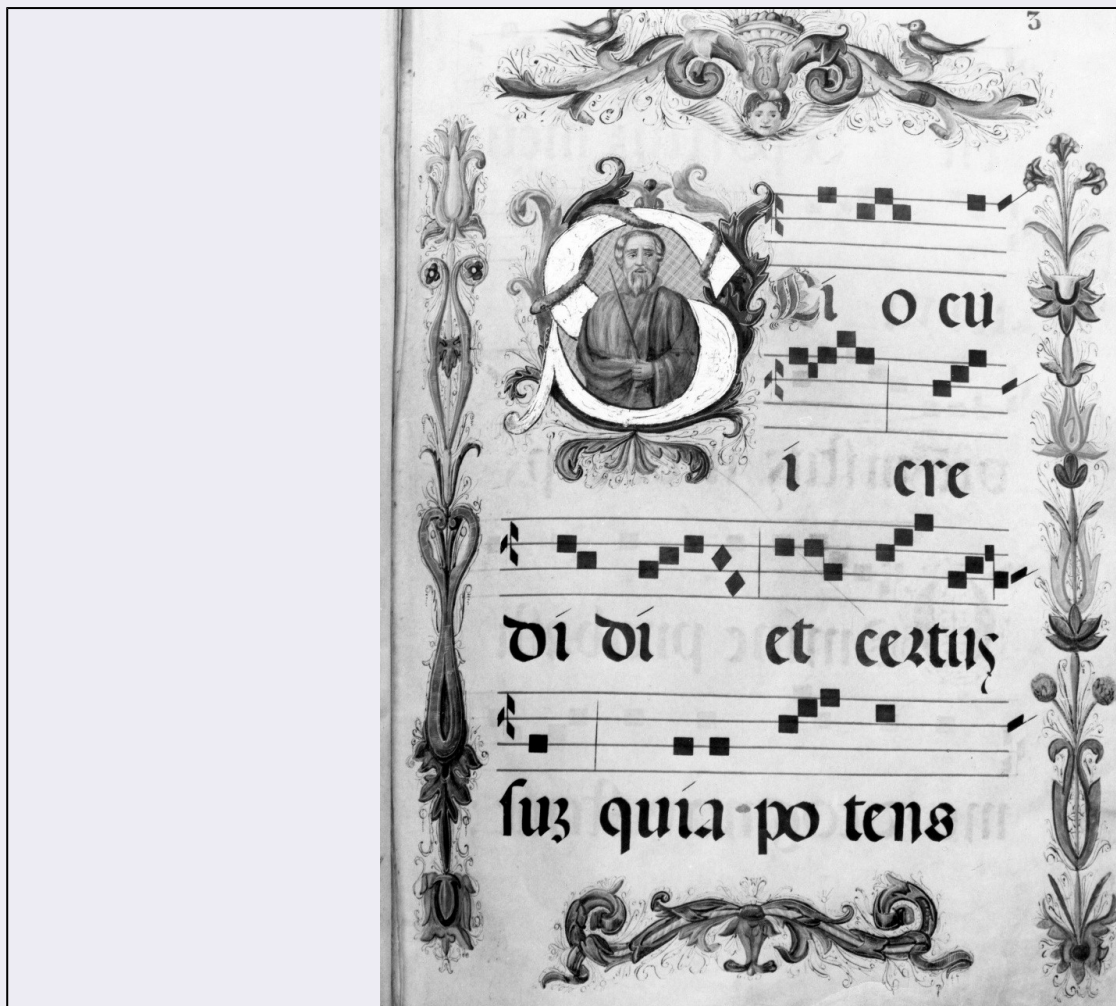 3
SCi o cu
i cre
di di et certus
ſuz quia po tens